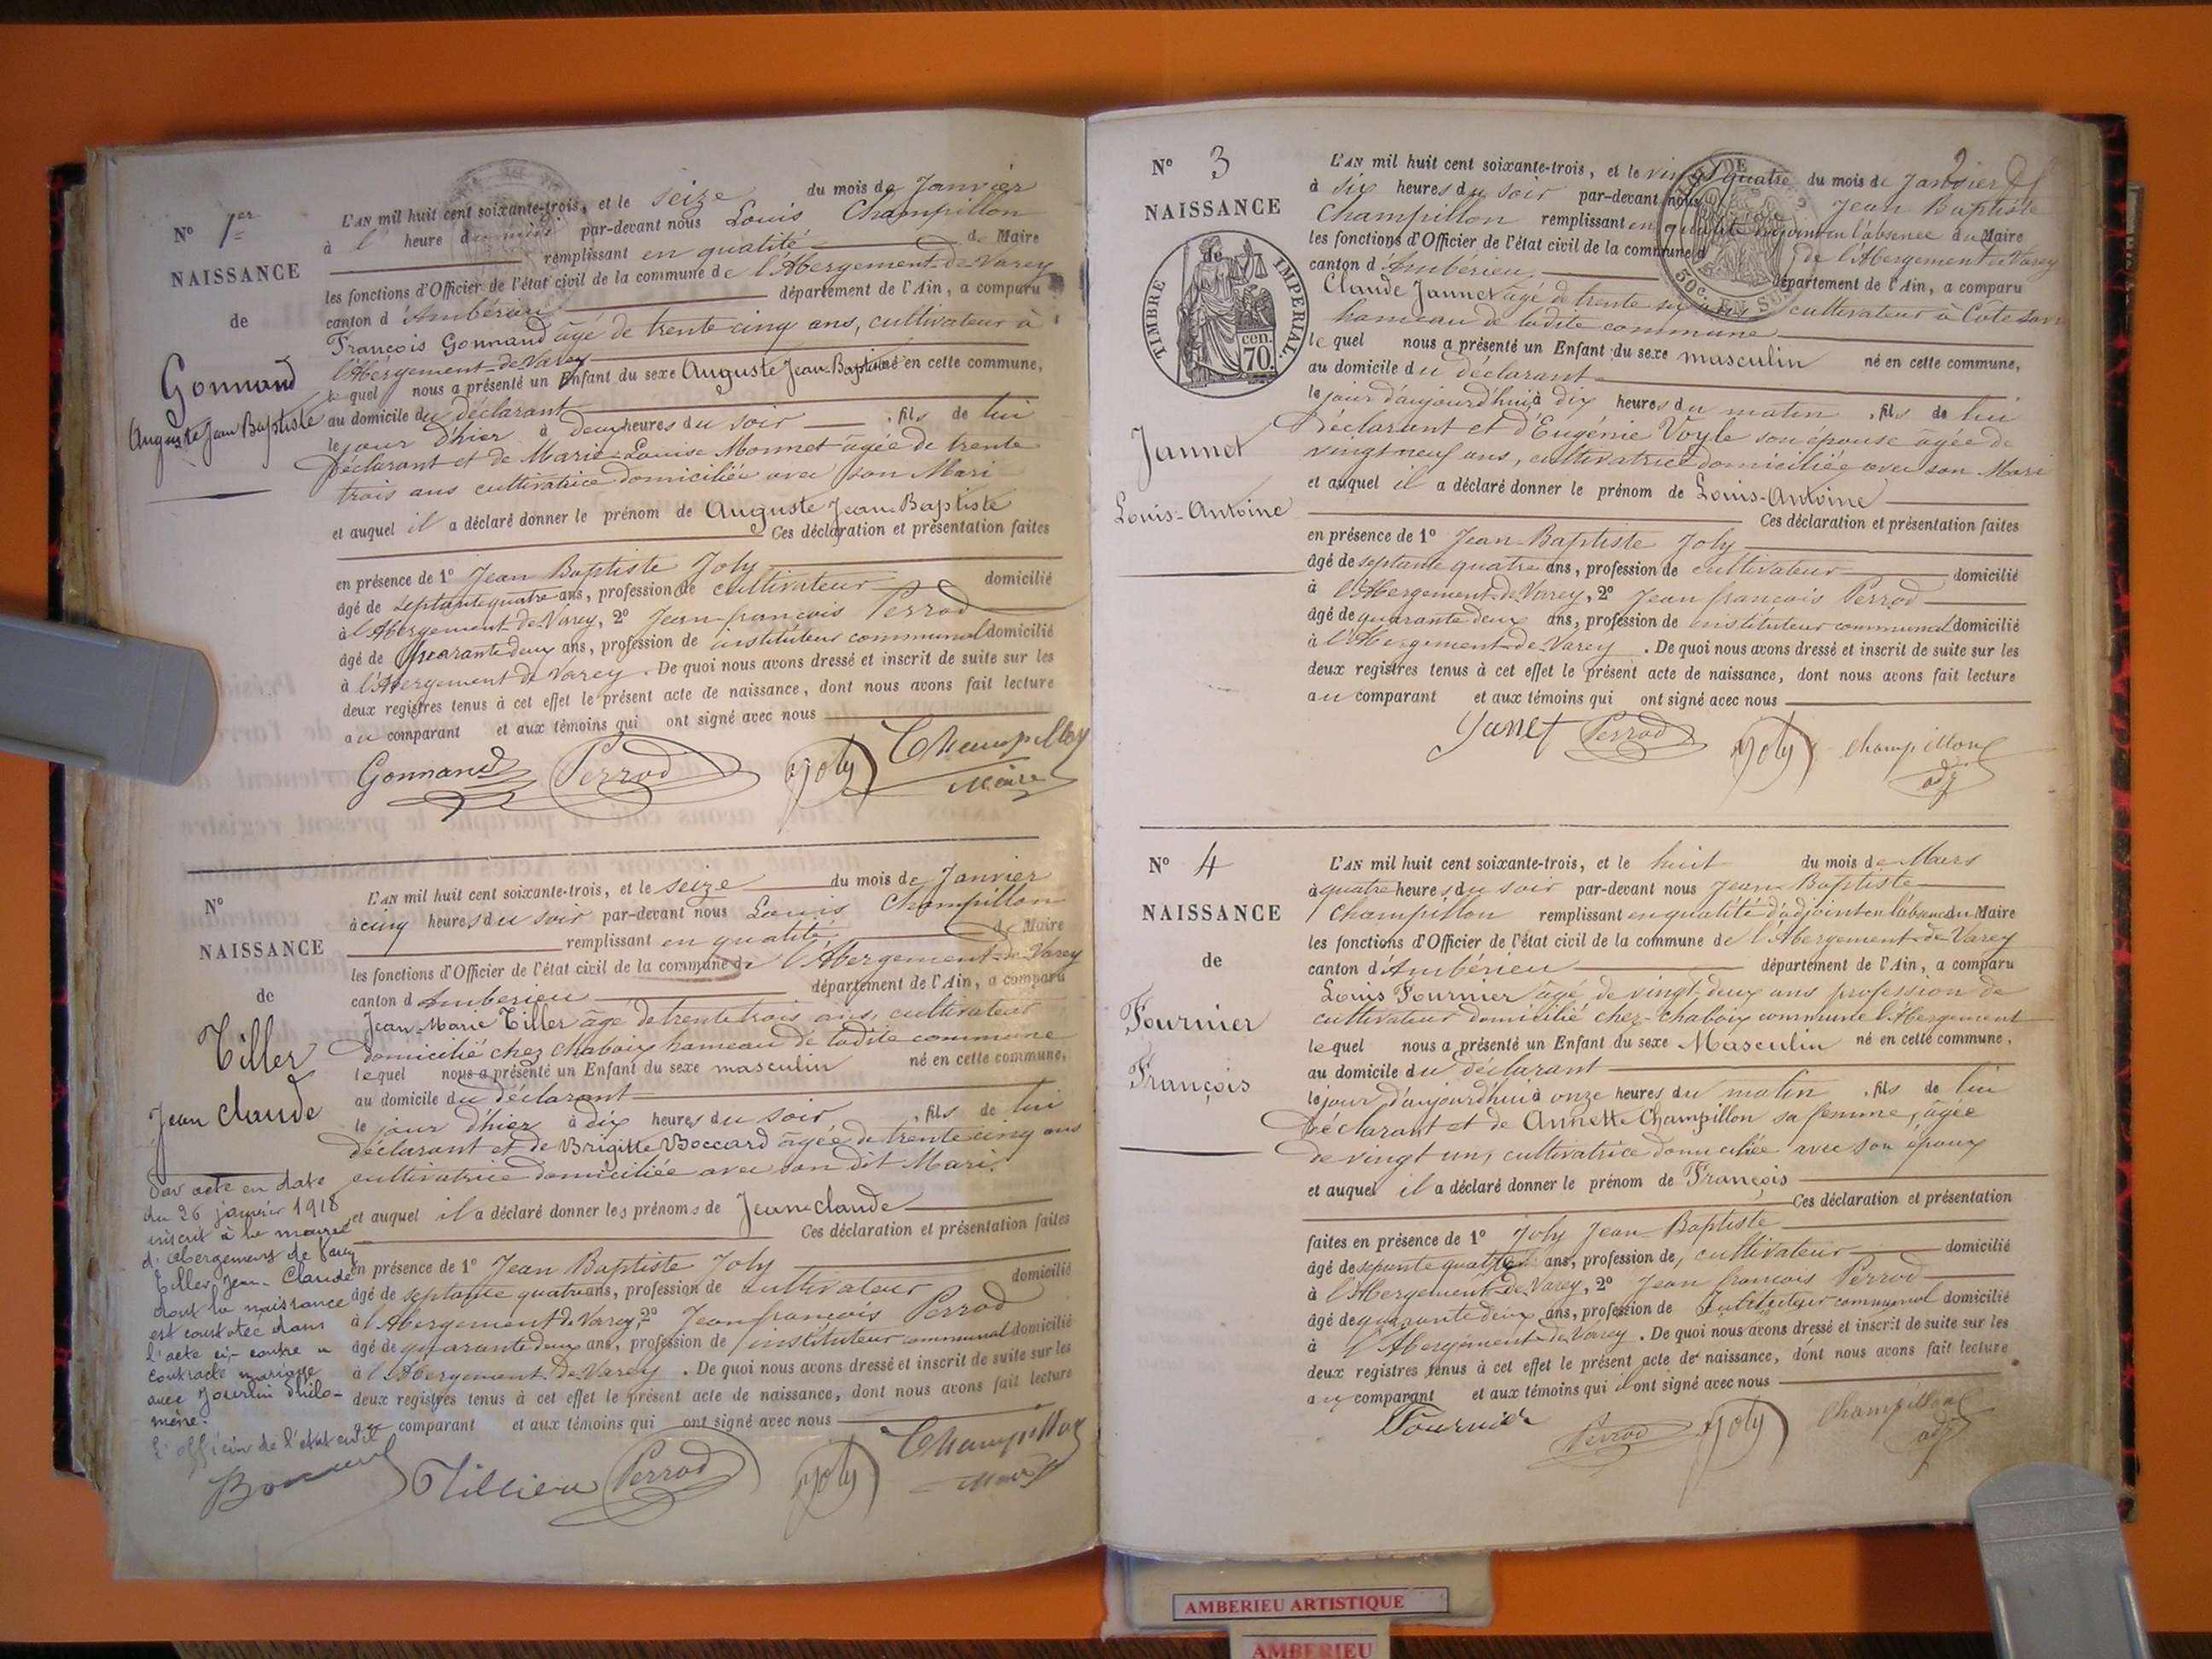 N° 1er
NAISSANCE
de
Gonnand
Auguste Jean Baptiste
L'AN mil huit cent soixante-trois, et le seize du mois de Janvier
à 1 heure du midi par-devant nous Louis Champillon
remplissant en qualité de Maire
les fonctions d'Officier de l'état civil de la commune de l'Abergement-de-Varey
canton d'Ambérieu département de l'Ain, a comparu
François Gonnand âgé de trente cinq ans, cultivateur à
l'Abergement-de-Varey
lequel nous a présenté un Enfant du sexe Auguste Jean-Baptiste né en cette commune,
au domicile du déclarant
le jour d'hier à deux heures du soir, fils de lui
Déclarant et de Marie-Louise Monnet âgée de trente
trois ans cultivatrice domiciliée avec son Mari
et auquel il a déclaré donner le prénom de Auguste Jean-Baptiste
Ces déclaration et présentation faites
en présence de 1° Jean Baptiste Joly
âgé de septante quatre ans, profession de cultivateur domicilié
à l'Abergement-de-Varey, 2° Jean-françois Perrod
âgé de Quarante deux ans, profession de instituteur communal domicilié
à l'Abergement de Varey. De quoi nous avons dressé et inscrit de suite sur les
deux registres tenus à cet effet le présent acte de naissance, dont nous avons fait lecture
au comparant et aux témoins qui ont signé avec nous
Gonnand Perrod Joly Champillon
Maire
N°
NAISSANCE
de
Tiller
Jean Claude
L'AN mil huit cent soixante-trois, et le seize du mois de Janvier
à cinq heures du soir par-devant nous Louis Champillon
remplissant en qualité de Maire
les fonctions d'Officier de l'état civil de la commune de l'Abergement-de-Varey
canton d'Ambérieu département de l'Ain, a comparu
Jean-Marie Tiller âgé de trente trois ans, cultivateur
domicilié chez Chaboix hameau de ladite commune
lequel nous a présenté un Enfant du sexe masculin né en cette commune,
au domicile du déclarant
le jour d'hier à dix heures du soir, fils de lui
déclarant et de Brigitte Boccard âgée de trente cinq ans
cultivatrice domiciliée avec son dit Mari.
et auquel il a déclaré donner les prénoms de Jean-claude
Ces déclaration et présentation faites
en présence de 1° Jean Baptiste Joly
âgé de septante quatre ans, profession de cultivateur domicilié
à l'Abergement de Varey, 2° Jean françois Perrod
âgé de quarante deux ans, profession de instituteur communal domicilié
à l'Abergement de Varey. De quoi nous avons dressé et inscrit de suite sur les
deux registres tenus à cet effet le présent acte de naissance, dont nous avons fait lecture
au comparant et aux témoins qui ont signé avec nous
Par acte en date
du 26 janvier 1918
inscrit à la mairie
d'abergement de Varey
Tiller Jean-Claude
dont la naissance
est constatée dans
l'acte ci-contre a
contracté mariage
avec Philo-
mène.
L'officier de l'état civil
Tillier Perrod Joly Champillon
Maire
N° 3
NAISSANCE
de
TIMBRE IMPERIAL.
70. cen.
Jannet
Louis-Antoine
50c. EN SUS
2
L'AN mil huit cent soixante-trois, et le vingt quatre du mois de Janvier
à six heures du soir par-devant nous Jean Baptiste
Champillon remplissant en qualité d'adjoint en l'absence du Maire
les fonctions d'Officier de l'état civil de la commune de l'Abergement de Varey
canton d'Ambérieu département de l'Ain, a comparu
Claude Jannet âgé de trente six ans cultivateur à Côte
hameau de ladite commune
lequel nous a présenté un Enfant du sexe masculin né en cette commune,
au domicile du déclarant
le jour d'aujourd'hui à dix heures du matin, fils de lui
Déclarant et d'Eugénie Voyle son épouse âgée de
vingt neuf ans, cultivatrice domiciliée avec son Mari
et auquel il a déclaré donner le prénom de Louis-Antoine
Ces déclaration et présentation faites
en présence de 1° Jean-Baptiste Joly
âgé de septante quatre ans, profession de cultivateur domicilié
à l'Abergement-de-Varey, 2° Jean françois Perrod
âgé de quarante deux ans, profession de instituteur communal domicilié
à l'Abergement-de-Varey. De quoi nous avons dressé et inscrit de suite sur les
deux registres tenus à cet effet le présent acte de naissance, dont nous avons fait lecture
au comparant et aux témoins qui ont signé avec nous
Janet Perrod Joly Champillon
adj
N° 4
NAISSANCE
de
Fournier
François
L'AN mil huit cent soixante-trois, et le huit du mois de Mars
à quatre heures du soir par-devant nous Jean Baptiste
Champillon remplissant en qualité d'adjoint en l'absence du Maire
les fonctions d'Officier de l'état civil de la commune de l'Abergement-de-Varey
canton d'Ambérieu département de l'Ain, a comparu
Louis Fournier âgé de vingt-deux ans profession de
cultivateur domicilié chez-Chaboix commune l'Abergement
lequel nous a présenté un Enfant du sexe Masculin né en cette commune,
au domicile du déclarant
le jour d'aujourd'hui à onze heures du matin, fils de lui
Déclarant et de Annette Champillon sa femme, âgée
de vingt un, cultivatrice domiciliée avec son époux
et auquel il a déclaré donner le prénom de François
Ces déclaration et présentation
faites en présence de 1° Joly Jean-Baptiste
âgé de septante quatre ans, profession de cultivateur domicilié
à l'Abergement-de-Varey, 2° Jean françois Perrod
âgé de quarante deux ans, profession de Instituteur communal domicilié
à l'Abergement-de-Varey. De quoi nous avons dressé et inscrit de suite sur les
deux registres tenus à cet effet le présent acte de naissance, dont nous avons fait lecture
au comparant et aux témoins qui ont signé avec nous
Fournier Perrod Joly Champillon
adj
AMBERIEU ARTISTIQUE
AMBERIEU